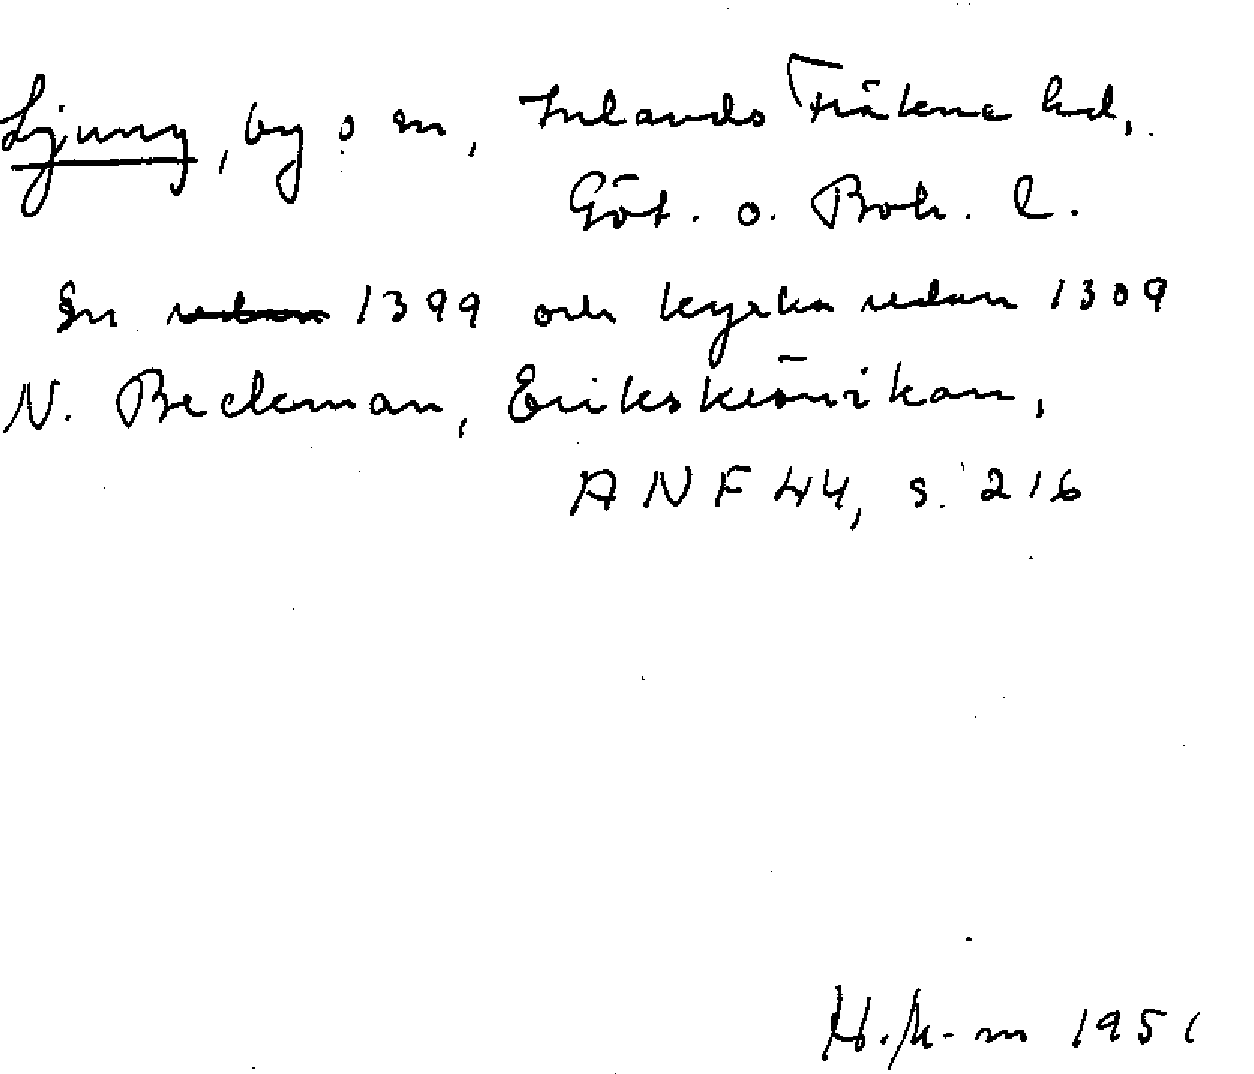 Ljung, by o sn, Inlands Fräkne hd,
Göt. o. Boh. l.
Sn 1399 och kyrka redan 1309
N. Beckman, Erikskrönikan,
ANF 44, s. 216
1951